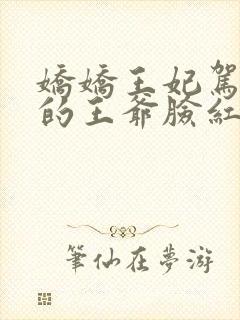 嬌嬌王妃駕
的王爺臉紅
筆仙在夢游